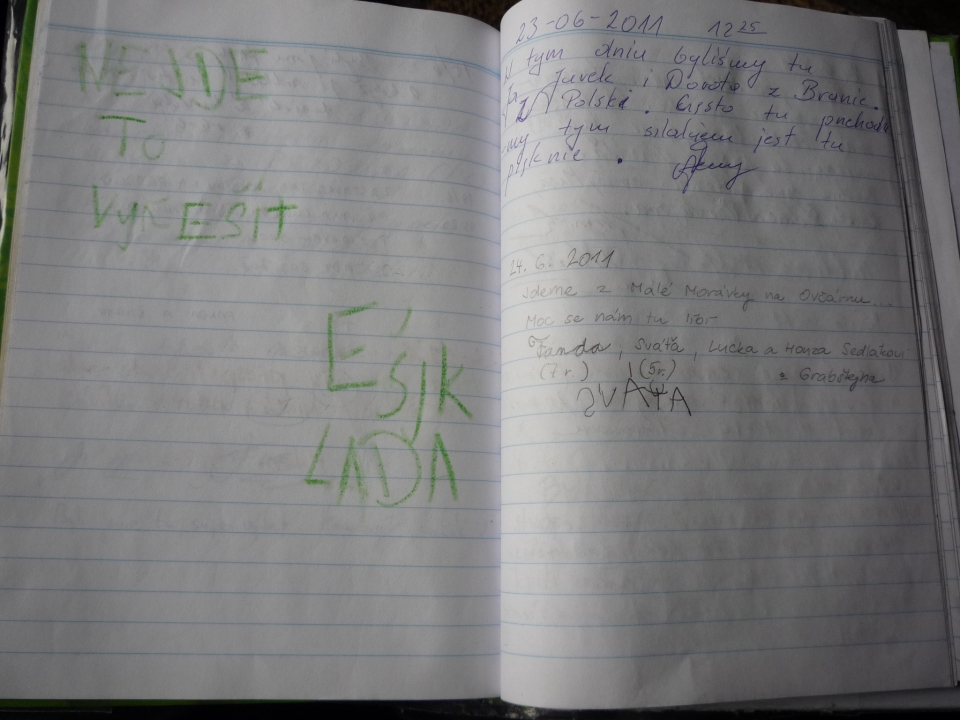 NEJDE
TO
VYŘEŠIT
EŠJK
LADA
23-06-2011 12 25
W tym dniu byliśmy tu
Ja, Jurek i Dorota z Branic.
Z Polski. Często tu przychodzi
my tym szlakiem jest tu
pięknie.
24. 6. 2011
Jdeme z Malé Morávky na Ovčárnu...
Moc se nám tu líbí
Fanda, Sváťa, Lucka a Honza Sedlákovi
(7 r.) (5 r.) z Grabštejna
SVÁŤA